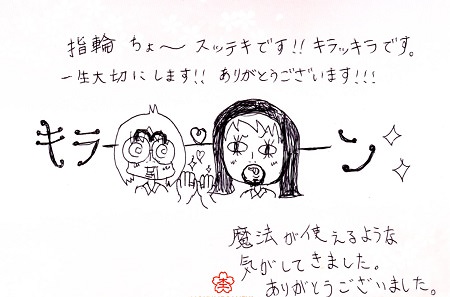 指輪 ちょ〜 スッテキです!! キラッキラです。
一生大切にします!! ありがとうございます!!!
キラーン
魔法が使えるような
気がしてきました。
ありがとうございました。